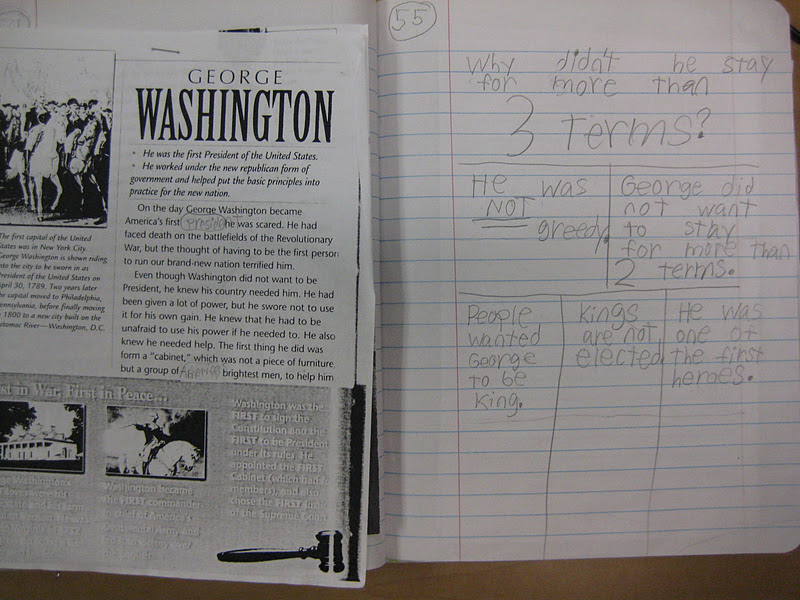 GEORGE
WASHINGTON
• He was the first President of the United States.
• He worked under the new republican form of
government and helped put the basic principles into
practice for the new nation.
On the day George Washington became
America's first President he was scared. He had
faced death on the battlefields of the Revolutionary
War, but the thought of having to be the first person
to run our brand-new nation terrified him.
Even though Washington did not want to be
President, he knew his country needed him. He had
been given a lot of power, but he swore not to use
it for his own gain. He knew that he had to be
unafraid to use his power if he needed to. He also
knew he needed help. The first thing he did was
form a "cabinet," which was not a piece of furniture,
but a group of brightest men, to help him
The first capital of the United
States was in New York City.
George Washington is shown riding
into the city to be sworn in as
President of the United States on
April 30, 1789. Two years later
the capital moved to Philadelphia,
Pennsylvania, before finally moving
in 1800 to a new city built on the
Potomac River—Washington, D.C.
st in War, First in Peace...
Washington became
the FIRST commander
in chief of America's
Washington was the
FIRST to sign the
Constitution and the
FIRST to be President
under its rules. He
appointed the FIRST
Cabinet (which had
members), and also
chose the FIRST
of the Supreme Court
55
Why didn't he stay
for more than
3 terms?
He was
NOT
greedy.
George did
not want
to stay
for more than
2 terms.
People
wanted
George
to be
king.
Kings
are not
elected.
He was
one of
the first
heroes.